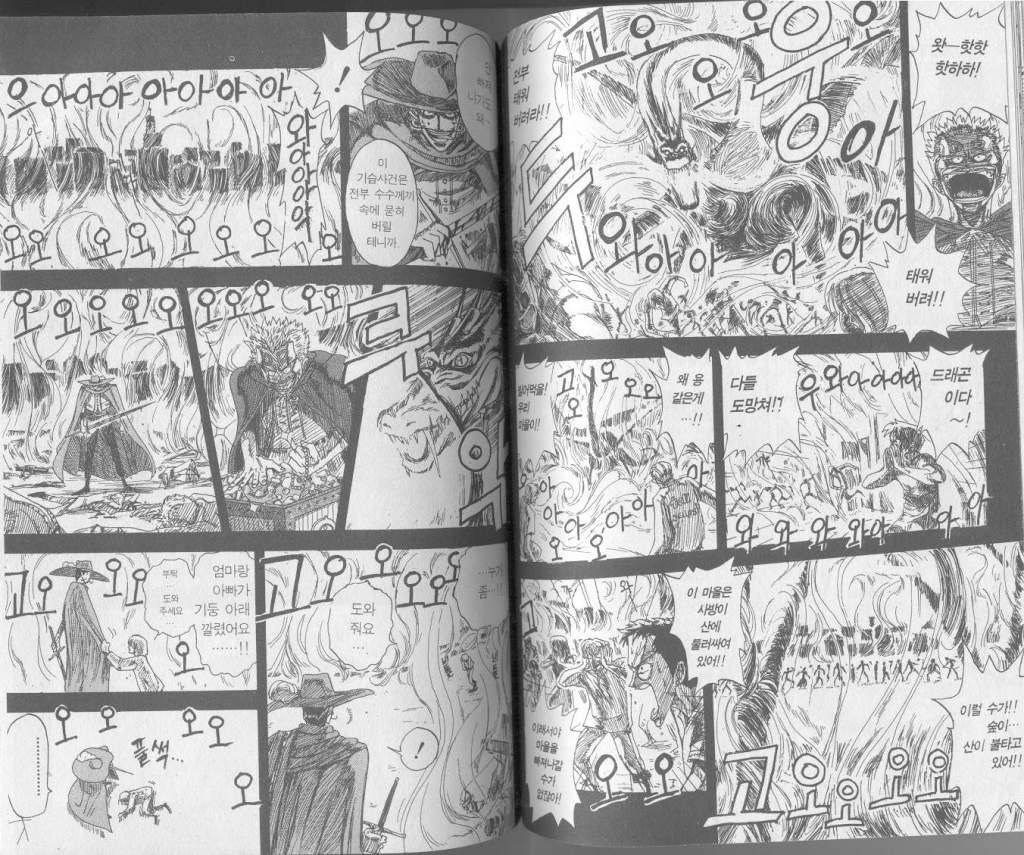 왓—핫핫
핫하하!
태워
버려!!
고오오오
우웅
전부
태워
버려라!!
와아아아아아아
드래곤
이다
~!
다들
도망쳐!?
우와아아아아
와와와와아와아
왜 용
같은게
…!!
고오오오
우리
마을이!
아아아아아
오오오
이럴 수가!!
숲이…
산이 불타고
있어!!
고오오오오
이 마을은
사방이
산에
둘러싸여
있어!!
와
이래서야
마을을
빠져나갈
수가
없잖아!
오오
오오오
!
이
기습사건은
전부 수수께끼
속에 묻혀
버릴
테니까
우아아아아아아아
와아아아아
오오오오오오오오
오오오
오오오오오
오오오오오
…누가
좀…!!
도와
줘요
…
고오오오오
!
엄마랑
아빠가
기둥 아래
깔렸어요
……!!
부탁
도와
주세요
고오오오
오
오오오오
풀썩…
………
오